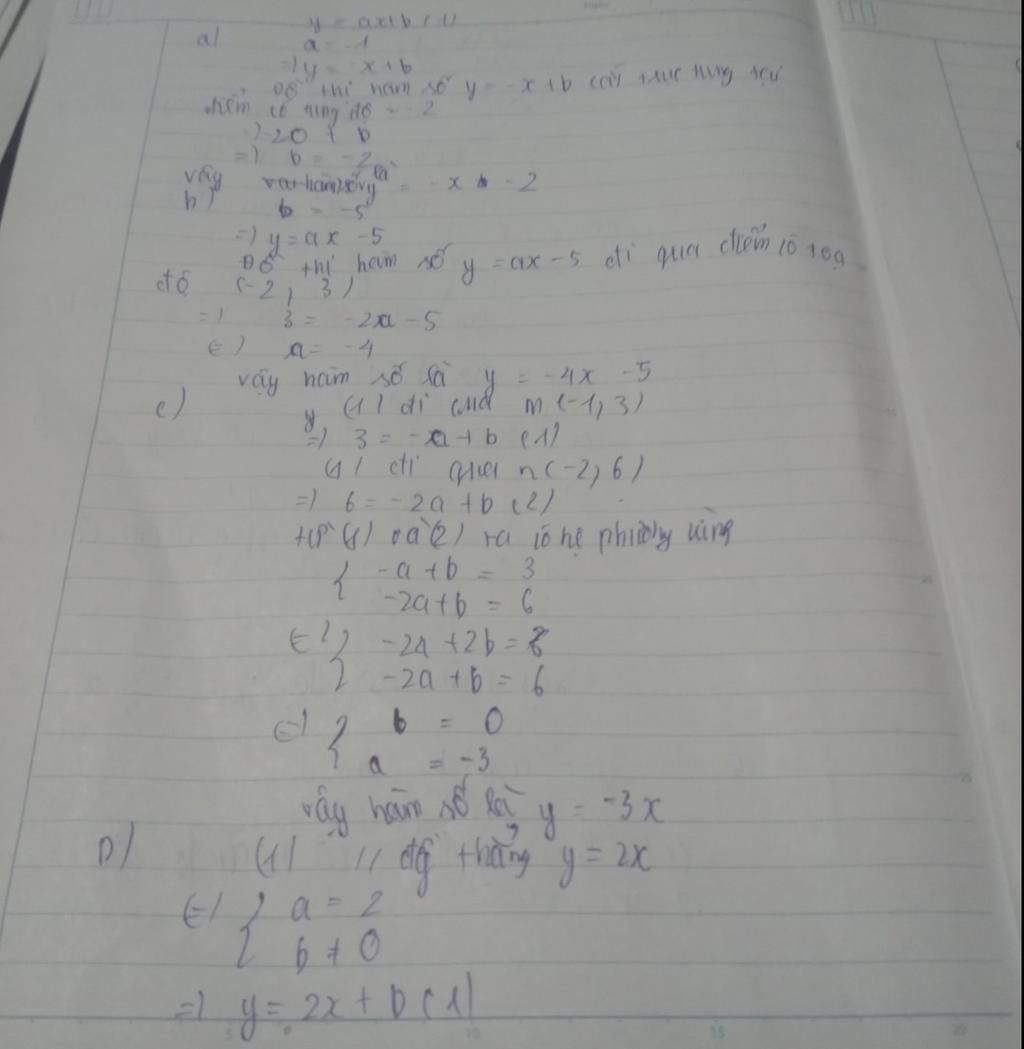 y = ax+b (1)
a) a = -1
=) y = -x+b
Đồ thị hàm số y = -x+b cắt trục tung tại
điểm có tung độ = -2
=) -2 0 + b
=) b = -2
vậy hàm số y là = -x -2
b) b = -5
=) y = ax -5
Đồ thị hàm số y = ax -5 đi qua điểm có toạ
độ (-2, 3)
=) 3 = -2a -5
(=) a = -4
vậy hàm số là y = -4x -5
c) y (1) đi qua m(-1, 3)
=) 3 = -a+b (1)
(1) đi qua n(-2, 6)
=) 6 = -2a+b (2)
từ (1) và (2) ta có hệ phương trình
{ -a+b = 3
-2a+b = 6
(=) { -2a +2b = 6
-2a +b = 6
(=) { b = 0
a = -3
vậy hàm số là y = -3x
D) (1) // đg thẳng y = 2x
(=) { a = 2
b ≠ 0
=) y = 2x + b (1)
5 10 15 20